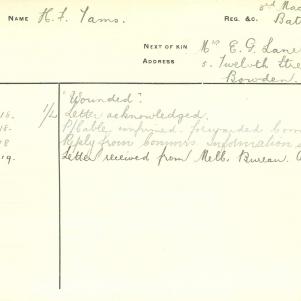 NAME H. F. Tams.
REG. &C. 3rd Mac
Bat
NEXT OF KIN Mrs E. G. Lane
ADDRESS 5. Twelvth Stre
Bowden.
"Wounded".
16. 1/L Letter acknowledged.
18. P/Cable confirmed. forwarded Com
18 Reply from Commrs. Information
19. Letter received from Melb. Bureau.